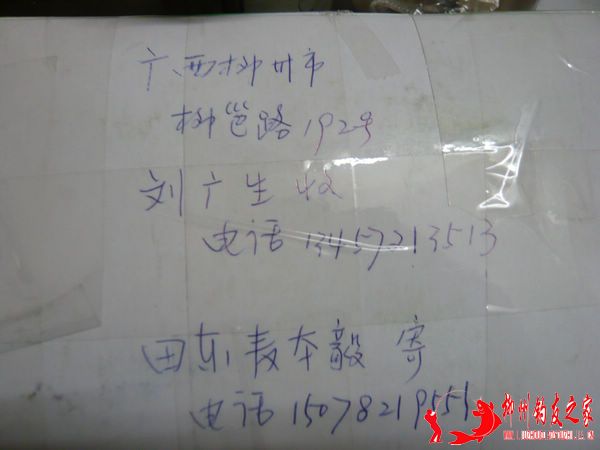 广西柳州市
柳邕路192号
刘广生 收
电话 13457213513
田东麦本毅 寄
电话 15078219551
柳州钓友之家